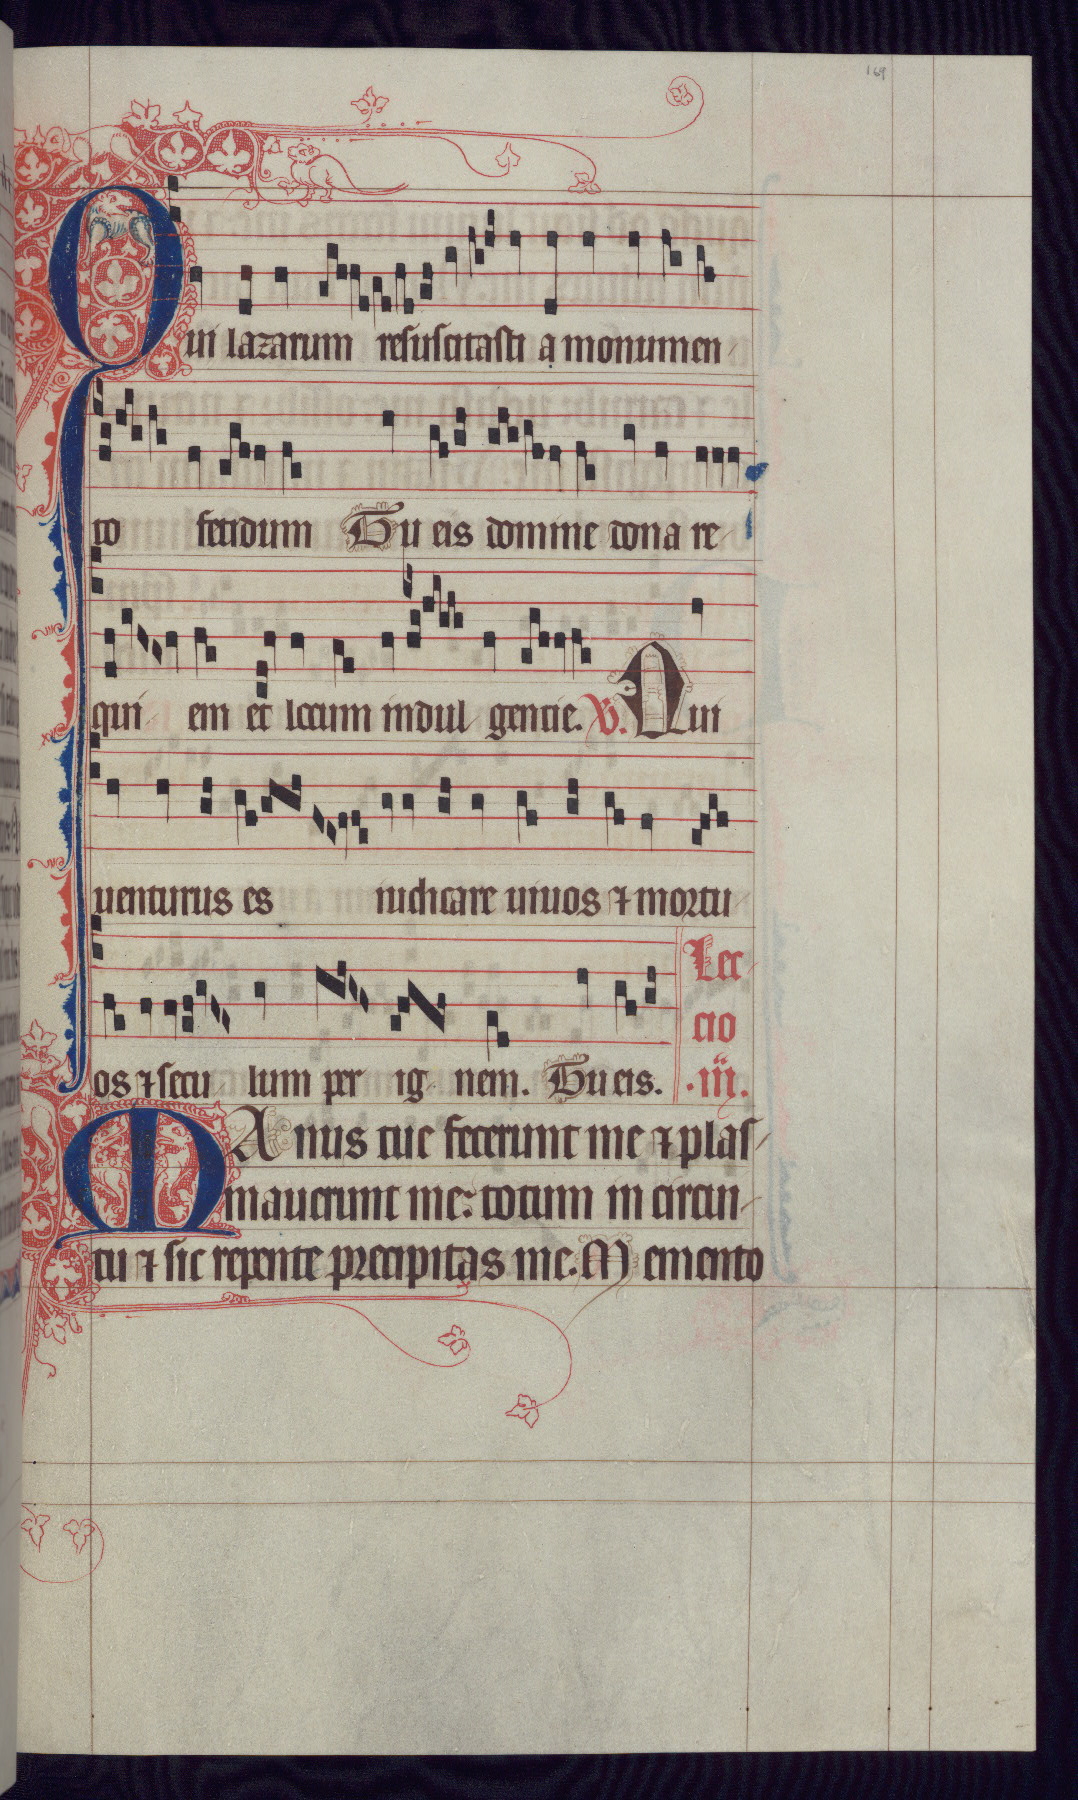 169
Qui lazarum resuscitasti a monumen
to fetidum Tu eis domine dona re
qui em et locum indul gencie. V. Qui
uenturus es iudicare uiuos ⁊ mortu
os ⁊ secu lum per ig nem. Tu eis.
Lec
cio
.iij.
MAnus tue fecerunt me ⁊ plas
mauerunt me: totum in circui
tu ⁊ sic repente precipitas me. Memento